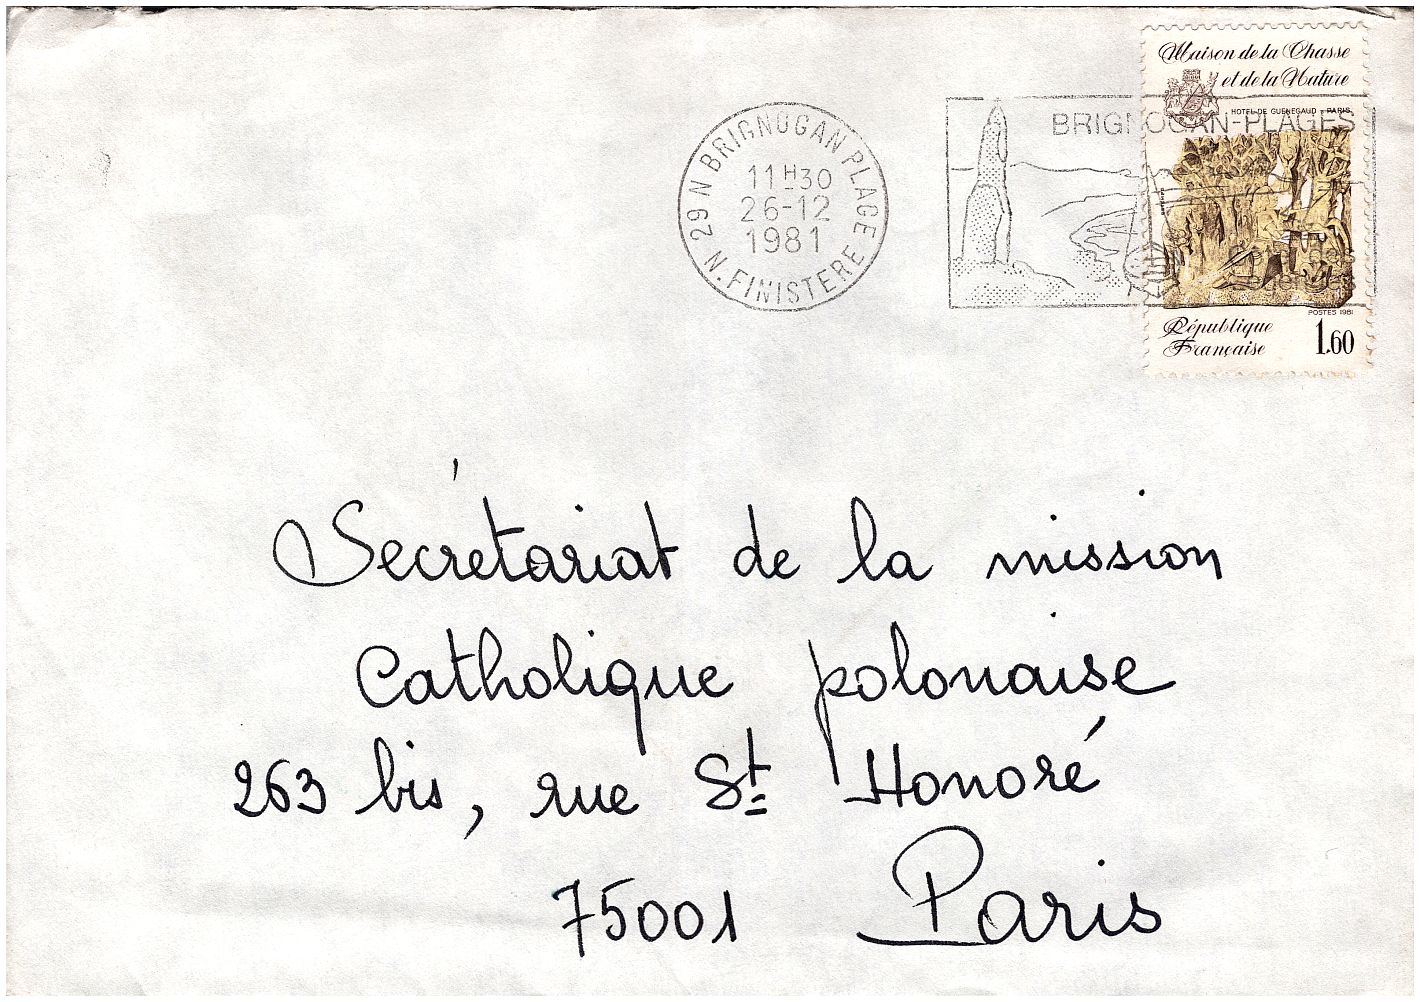 Maison de la Chasse
et de la Nature
HOTEL DE GUENEGAUD - PARIS
BRIGNOGAN-PLAGES
29 N BRIGNOGAN PLAGE
11H30
26-12
1981
N. FINISTERE
POSTES 1981
République
Française
1.60
Secrétariat de la mission
Catholique polonaise
263 bis, rue St Honoré
75001 Paris